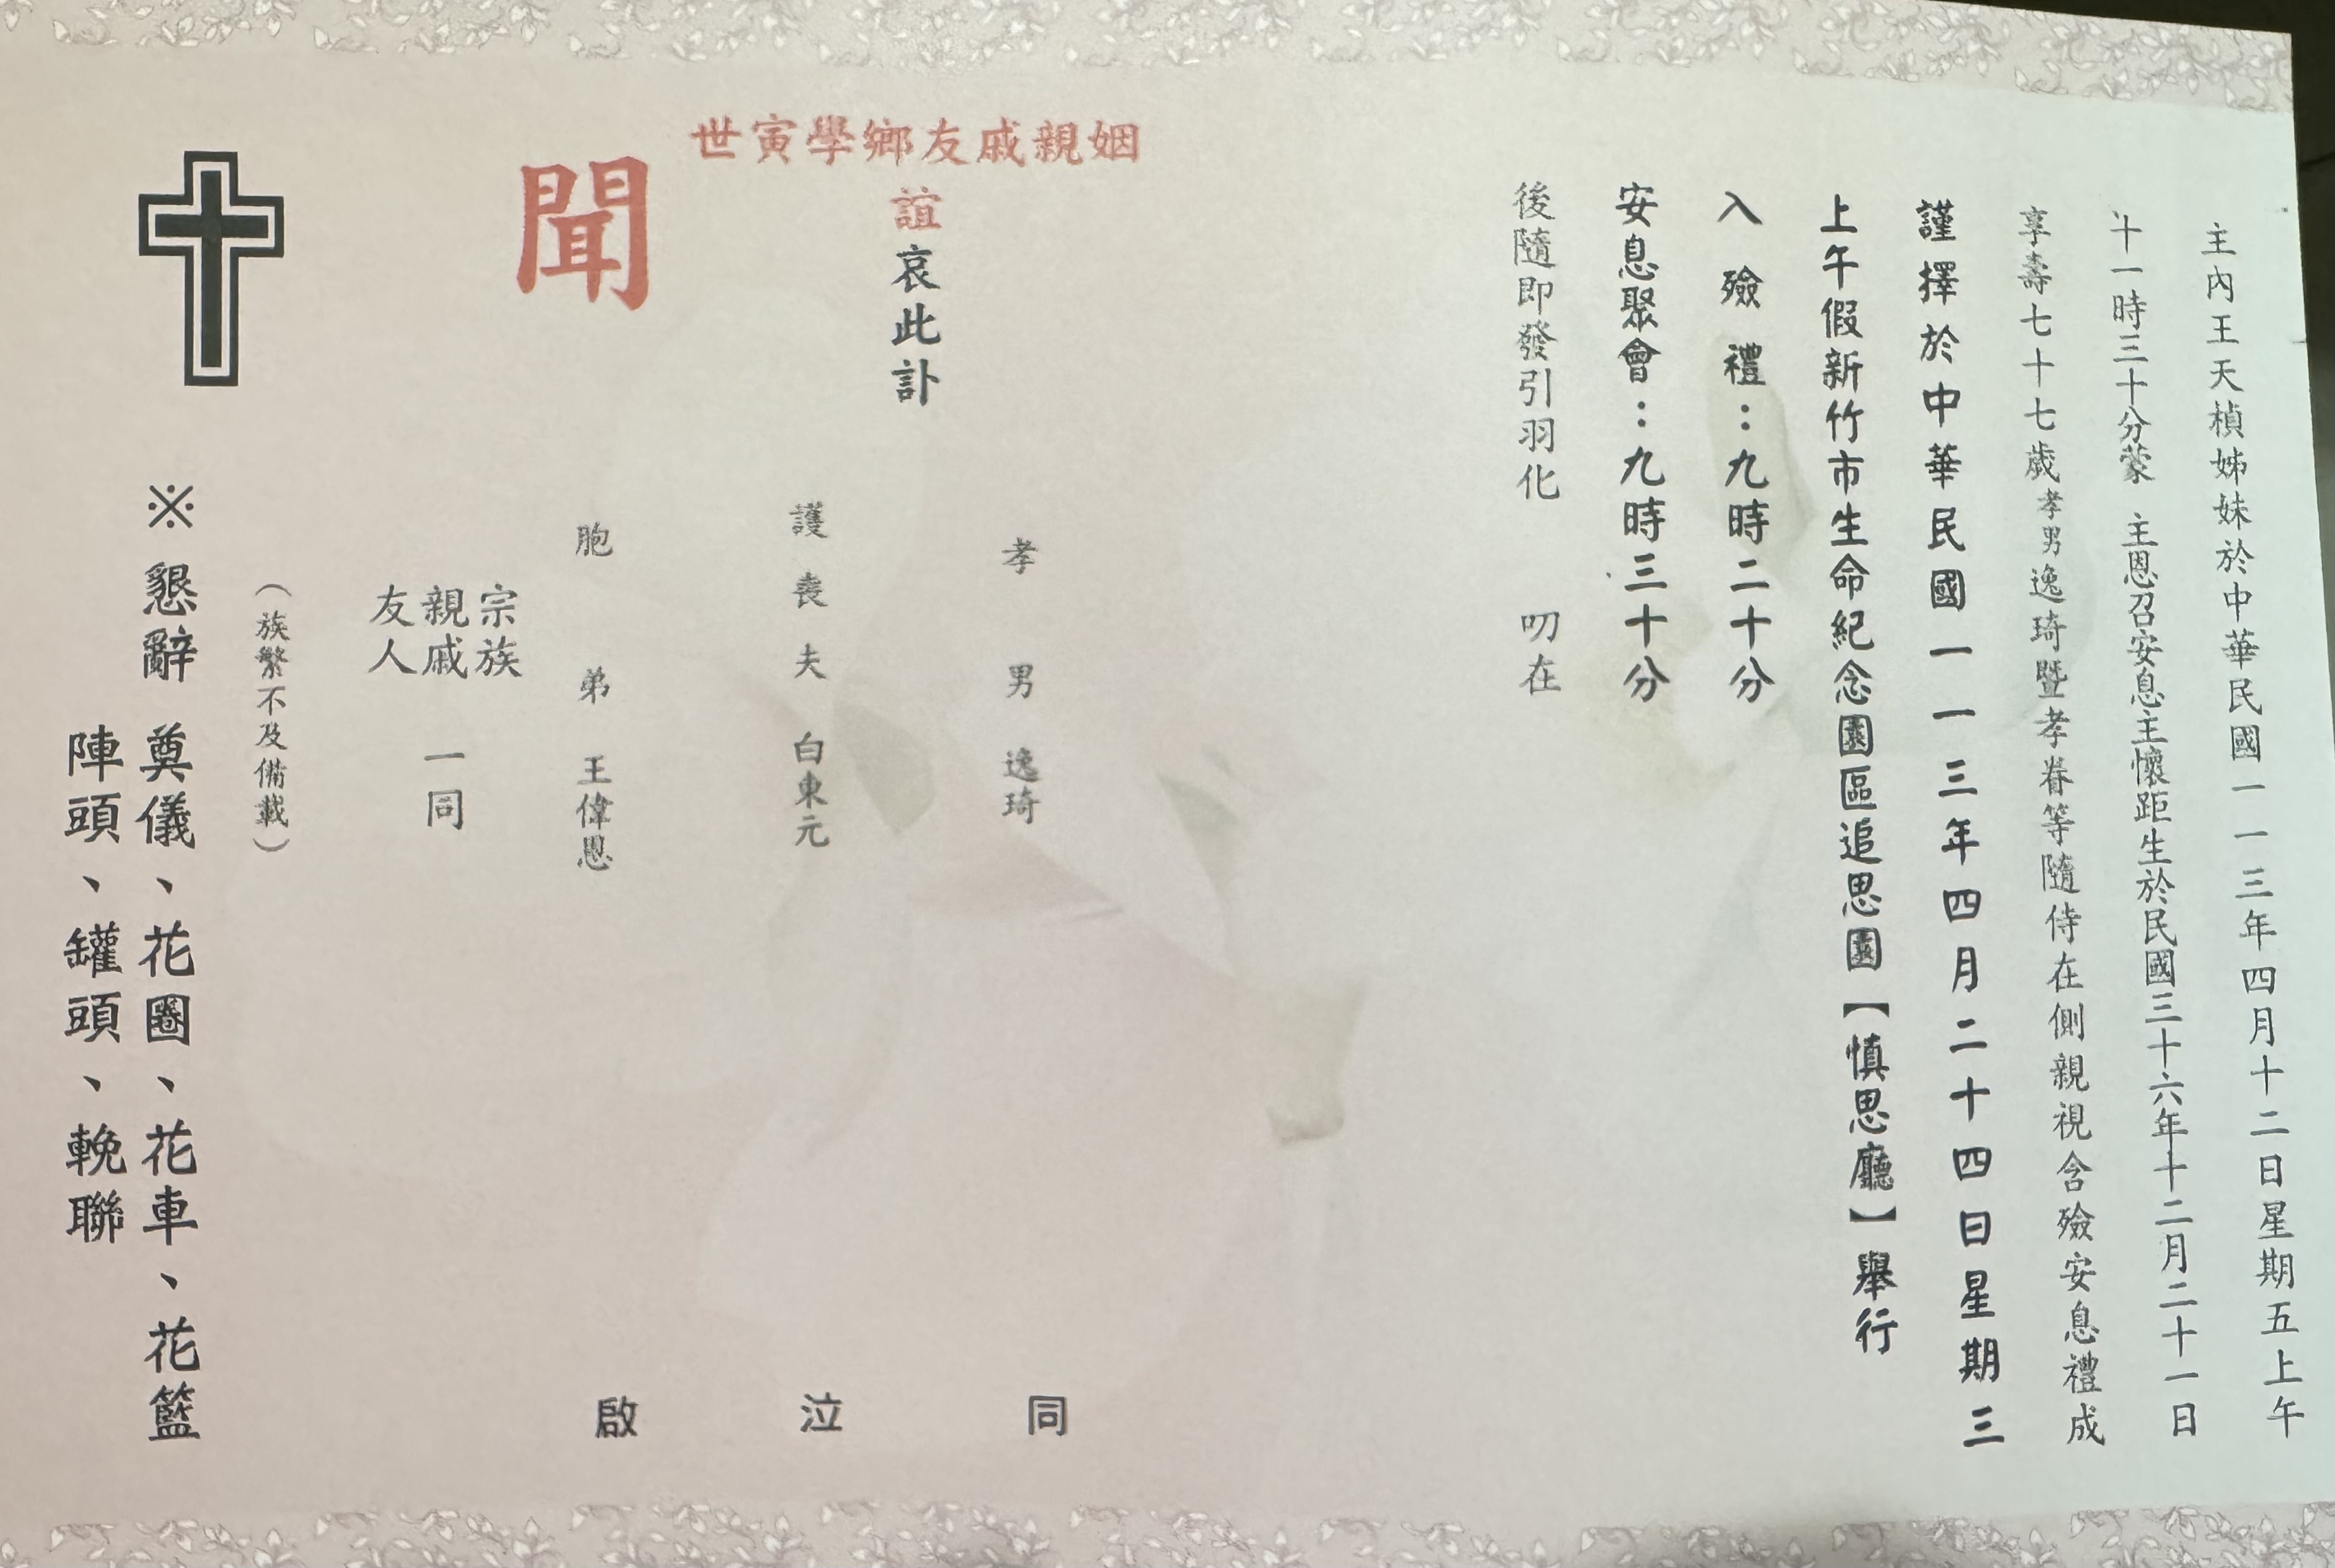 主內王天楨姊妹於中華民國一一三年四月十二日星期五上午
十一時三十分蒙 主恩召安息主懷距生於民國三十六年十二月二十一日
享壽七十七歲孝男逸琦暨孝眷等隨侍在側親視含殮安息禮成
謹擇於中華民國一一三年四月二十四日星期三
上午假新竹市生命紀念園區追思園【慎思廳】舉行
入殮禮：九時二十分
安息聚會：九時三十分
後隨即發引羽化 叨在
姻親戚友鄉學寅世
誼哀此訃
聞
孝男 逸琦
護喪夫 白東元
胞弟 王偉恩
宗族
親戚 一同
友人
同泣啟
（族繁不及備載）
※懇辭 奠儀、花圈、花車、花籃
陣頭、罐頭、輓聯